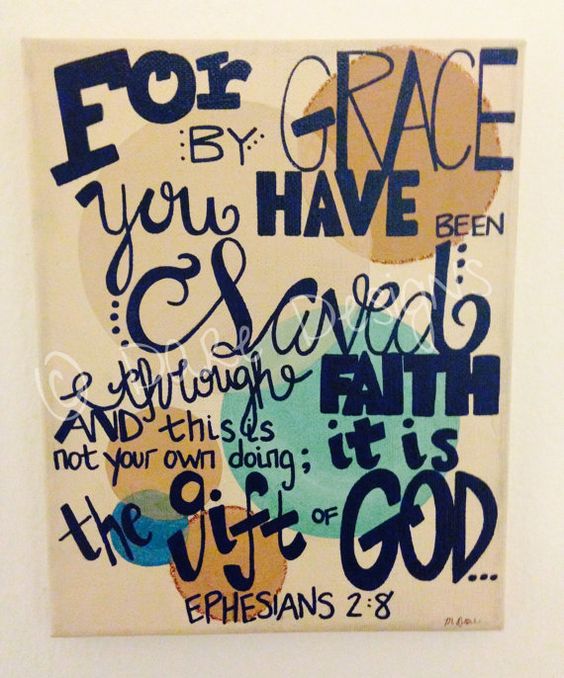 For
BY GRACE
you HAVE BEEN
Saved
through FAITH
AND this is
not your own doing; it is
the gift OF GOD...
EPHESIANS 2:8
© Dare Designs